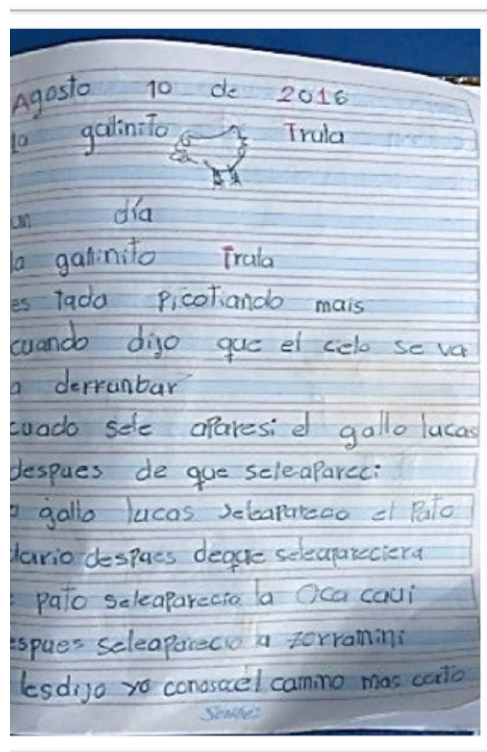 Agosto 10 de 2016
la galinito Trula
un día
la gallinito Trula
es tada picotiando mais
cuando dijo que el cielo se va
a derrunbar
cuado sele aparesi el gallo lucas
despues de que seleapareci
o gallo lucas seleapareco el Pato
lario despues deque seleapareciera
pato seleaparecio la Oca caui
espues seleaparecio la zorramini
lesdijo yo conosco el camino mas corto
Scribe